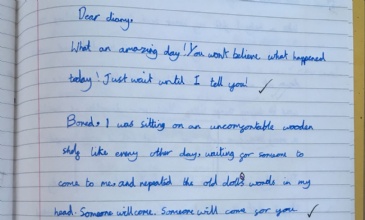 Dear diary,
What an amazing day! You won't believe what happened
today! Just wait until I tell you!
Bored, I was sitting on an uncomfortable wooden
shelf like every other day, waiting for someone to
come to me, and repeated the old doll's words in my
head. Someone will come. Someone will come for you.